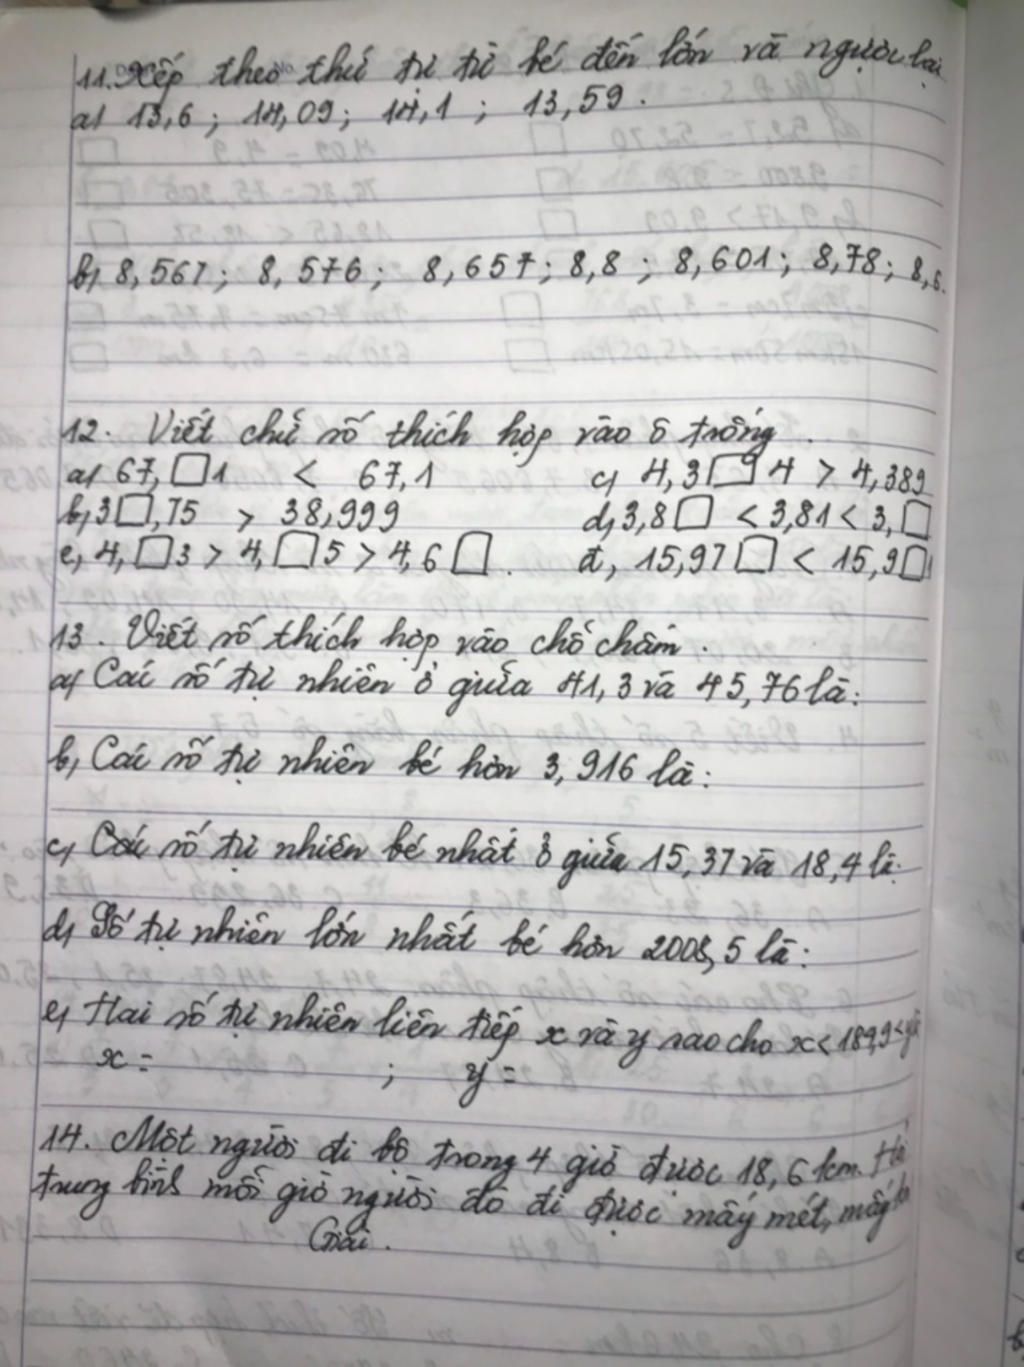 11. Xếp theo thứ tự từ bé đến lớn và ngược lại
a) 13,6 ; 14,09 ; 14,1 ; 13,59 .
b) 8,567 ; 8,576 ; 8,657 ; 8,8 ; 8,601 ; 8,78 ; 8,6.
12. Viết chữ số thích hợp vào ô trống .
a) 67,□1 < 67,1 c) 4,3□4 > 4,389
b) 3□,75 > 38,999 d) 3,8□ < 3,81 < 3,□
e, 4,□3 > 4,□5 > 4,6□ . đ, 15,97□ < 15,9□
13. Viết số thích hợp vào chỗ chấm .
a) Các số tự nhiên ở giữa 41,3 và 45,76 là :
b, Các số tự nhiên bé hơn 3,916 là :
c, số tự nhiên bé nhất ở giữa 15,37 và 18,4 là :
d, Số tự nhiên lớn nhất bé hơn 2008,5 là :
e, Hai số tự nhiên liên tiếp x và y sao cho x < 189,9 < y
x = ; y =
14. Một người đi bộ trong 4 giờ được 18,6 km.
trung bình mỗi giờ người đó đi được mấy mét, mấy
Giải .